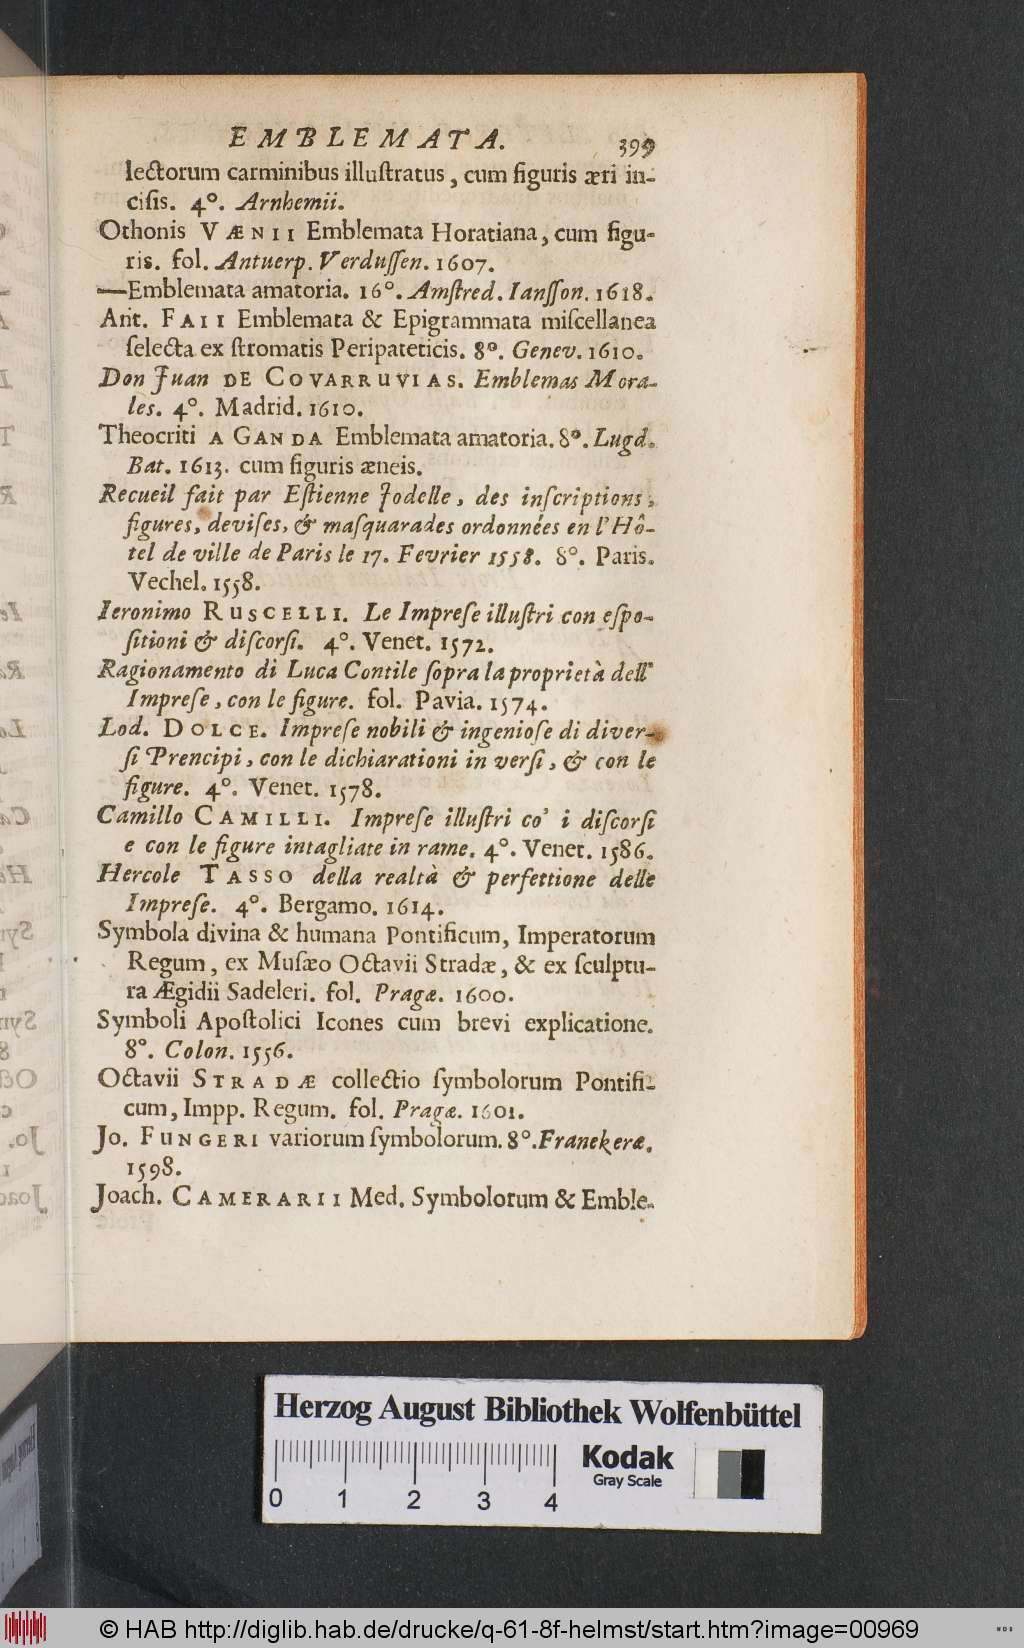 EMBLEMATA. 399
lectorum carminibus illuſtratus, cum figuris æri in-
ciſis. 4°. Arnhemii.
Othonis VÆNII Emblemata Horatiana, cum figu-
ris. fol. Antuerp. Verduſſen. 1607.
—Emblemata amatoria. 16°. Amſtred. Ianſſon. 1618.
Ant. FAII Emblemata & Epigrammata miſcellanea
ſelecta ex ſtromatis Peripateticis. 8°. Genev. 1610.
Don Juan DE COVARRUVIAS. Emblemas Mora-
les. 4°. Madrid. 1610.
Theocriti A GANDA Emblemata amatoria. 8°. Lugd.
Bat. 1613. cum figuris æneis.
Recueil fait par Eſtienne Jodelle, des inſcriptions,
figures, deviſes, & maſquarades ordonnées en l'Hô-
tel de ville de Paris le 17. Fevrier 1558. 8°. Paris.
Vechel. 1558.
Ieronimo RUSCELLI. Le Impreſe illuſtri con eſpo-
ſitioni & diſcorſi. 4°. Venet. 1572.
Ragionamento di Luca Contile ſopra la proprietà dell'
Impreſe, con le figure. fol. Pavia. 1574.
Lod. DOLCE. Impreſe nobili & ingenioſe di diver-
ſi Prencipi, con le dichiarationi in verſi, & con le
figure. 4°. Venet. 1578.
Camillo CAMILLI. Impreſe illuſtri co' i diſcorſi
e con le figure intagliate in rame. 4°. Venet. 1586.
Hercole TASSO della realtà & perfettione delle
Impreſe. 4°. Bergamo. 1614.
Symbola divina & humana Pontificum, Imperatorum
Regum, ex Muſæo Octavii Stradæ, & ex ſculptu-
ra Ægidii Sadeleri. fol. Pragæ. 1600.
Symboli Apoſtolici Icones cum brevi explicatione.
8°. Colon. 1556.
Octavii STRADÆ collectio ſymbolorum Pontifi-
cum, Impp. Regum. fol. Pragæ. 1601.
Jo. FUNGERI variorum ſymbolorum. 8°. Franekeræ.
1598.
Joach. CAMERARII Med. Symbolorum & Emble-
Herzog August Bibliothek Wolfenbüttel
Kodak
Gray Scale
0 1 2 3 4
© HAB http://diglib.hab.de/drucke/q-61-8f-helmst/start.htm?image=00969